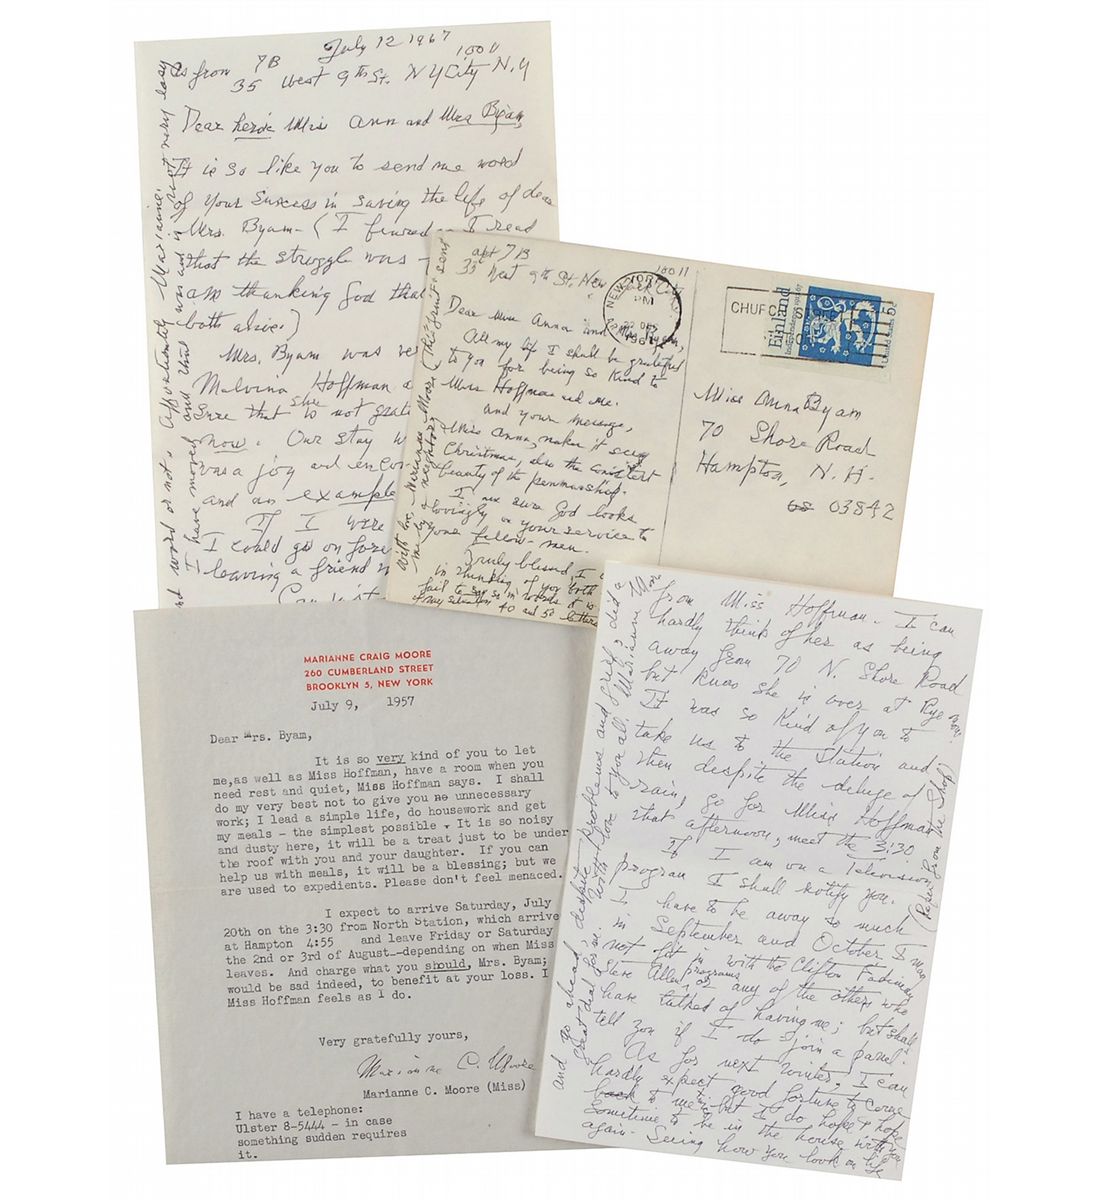 July 12 1967
As from 7B 10011
35 West 9th St. NY City N.Y
Dear heroic Miss Ann and Mrs Byam,
It is so like you to send me word
of your success in saving the life of dear
Mrs. Byam - (I feared as I read
that the struggle was
am thanking God that
both alive.)
Mrs. Byam was ve
Malvina Hoffman a
sure that she is not grati
now. Our stay w
was a joy and enco
and an example
If I were
I could go on fore
leaving a friend
word or not. Affectionately Marianne.
I have moved and that was and is not very easy
apt 7B 10011
35 West 9th St. New York City
Dear Miss Anna and Mrs Byam,
All my life I shall be grateful
to you for being so kind to
Miss Hoffman and me.
and your message,
Miss Anna, makes it seem
Christmas, also the consistent
beauty of the penmanship.
I am sure God looks
lovingly on your service to
your fellow-men.
Truly blessed, I
in thinking of you both
fail to say so in words it is
my situation, 40 and 50 letters
With love, Marianne Moore (the fruit sent
me by a neighbor)
NEW YORK
PM
22 DEC
196
CHURCH ST
Finland
Independence 1917-67
U.S. 5c
Miss Anna Byam
70 Shore Road
Hampton, N. H.
03842
MARIANNE CRAIG MOORE
260 CUMBERLAND STREET
BROOKLYN 5, NEW YORK
July 9, 1957
Dear Mrs. Byam,
It is so very kind of you to let
me,as well as Miss Hoffman, have a room when you
need rest and quiet, Miss Hoffman says. I shall
do my very best not to give you no unnecessary
work; I lead a simple life, do housework and get
my meals - the simplest possible. It is so noisy
and dusty here, it will be a treat just to be under
the roof with you and your daughter. If you can
help us with meals, it will be a blessing; but we
are used to expedients. Please don't feel menaced.
I expect to arrive Saturday, July
20th on the 3:30 from North Station, which arrive
at Hampton 4:55 and leave Friday or Saturday
the 2nd or 3rd of August--depending on when Miss
leaves. And charge what you should, Mrs. Byam;
would be sad indeed, to benefit at your loss. I
Miss Hoffman feels as I do.
Very gratefully yours,
Marianne C. Moore
Marianne C. Moore (Miss)
I have a telephone:
Ulster 8-5444 - in case
something sudden requires
it.
from Miss Hoffman - I can
hardly think of her as being
away from 70 N. Shore Road
but know she is over at Rye now.
It was so kind of you to
take us to the station and
then despite the deluge of
rain, go for Miss Hoffman
that afternoon, meet the 3:30
If I am on a Television
program I shall notify you.
I have to be away so much
in September and October I may
not fit in with the Clifton Fadiman
Steve Allen programs or any of the others who
have talked of having me; but shall
tell you if I do join a panel.
As for next winter, I can
hardly expect good fortune to come
back to me; but I do hope & hope
sometime to be in the house with you
again - Seeing how you look on life
and go ahead, despite problems and grief, did a
great deal for me. With love to you all, Marianne Moore
(Paper from the Shop)